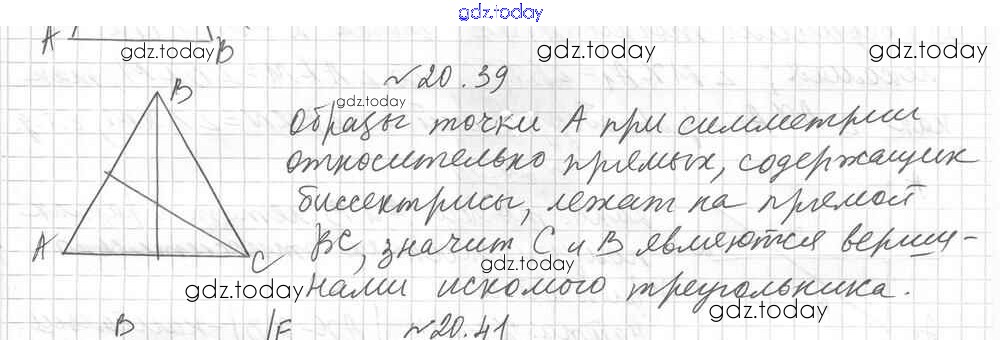 gdz.today
A B
gdz.today
gdz.today
gdz.today
№20.39
gdz.today
B
A
C
Образы точки А при симметрии
относительно прямых, содержащих
биссектрисы, лежат на прямой
BC, значит C и B являются верши-
нами искомого треугольника.
gdz.today
gdz.today
gdz.today
B F №20.41